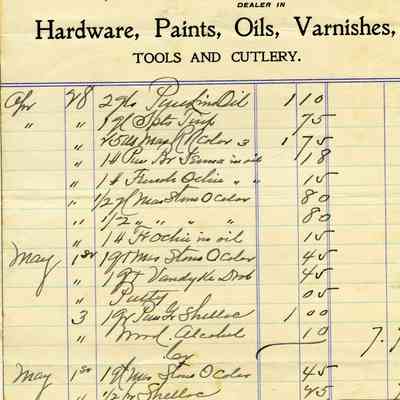 DEALER IN
Hardware, Paints, Oils, Varnishes,
TOOLS AND CUTLERY.
Apr 28 2 gls Oil 1 10
" " 1 gl Spts Turp 75
" 25 lbs Color 3 1 75
" 1# Pure Br Sienna in oil 18
" 1# French Ochre " " 15
" 1/2 gl Mas Stons O color 80
" 1/2 " " " " 80
" 1# Fr Ochre in oil 15
May 1st 1 qt Mas Stons O Color 45
" 1 qt Vandyke Drob 45
" Putty 05
3 1 qr Pure Gr Shellac 1 00
" Wood Alcohol 10 7.7
May 1st 1 qt Mas Stons O color 45
" 1/2 Shellac